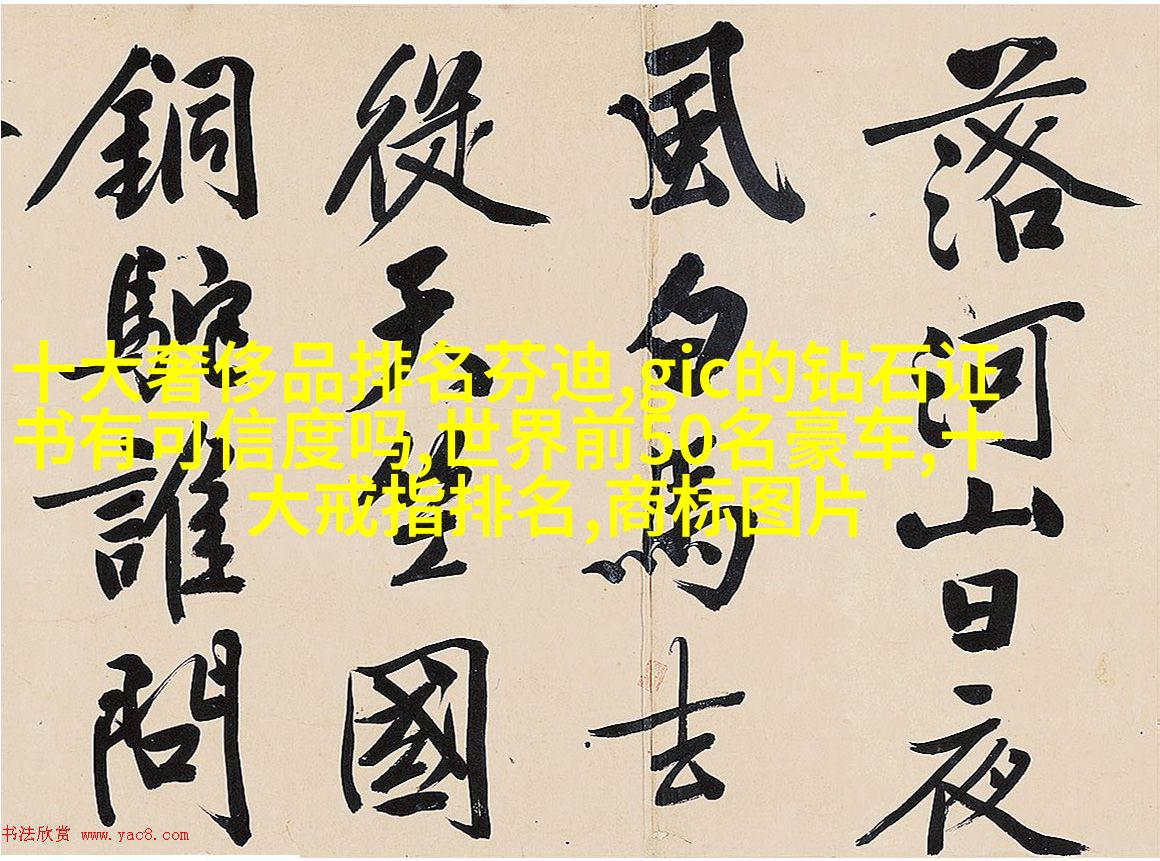 落河山日夜
風白馬去
從天竺國
銅駝誰問
十大奢侈品排名芬迪,gic的钻石证
书有可信度吗,世界前50名豪车,十
大戒指排名,商标图片
书法欣赏 www.yac8.com